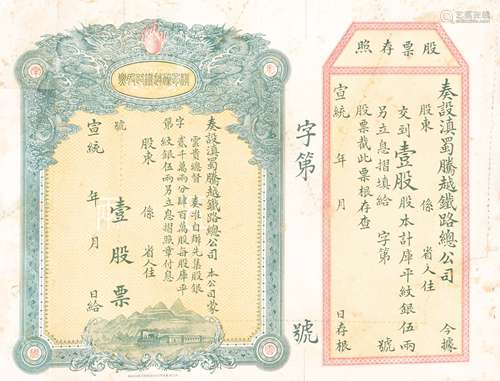 股票存照
奏設滇蜀騰越鐵路總公司 今據
股東 係 省人住
交到壹股股本計庫平紋銀伍兩
另立息摺填給 字第
股票截此票根存查
宣統 年 月 日存根
字第 號
奏設滇蜀騰越鐵路總公司 本公司蒙
雲貴總督 奏准自辦先集股銀
貳千萬兩分肆百萬股每股庫平
紋銀伍兩另立息摺照章付息
字第 號
股東 係 省人住
壹股票
宣統 年 月 日給